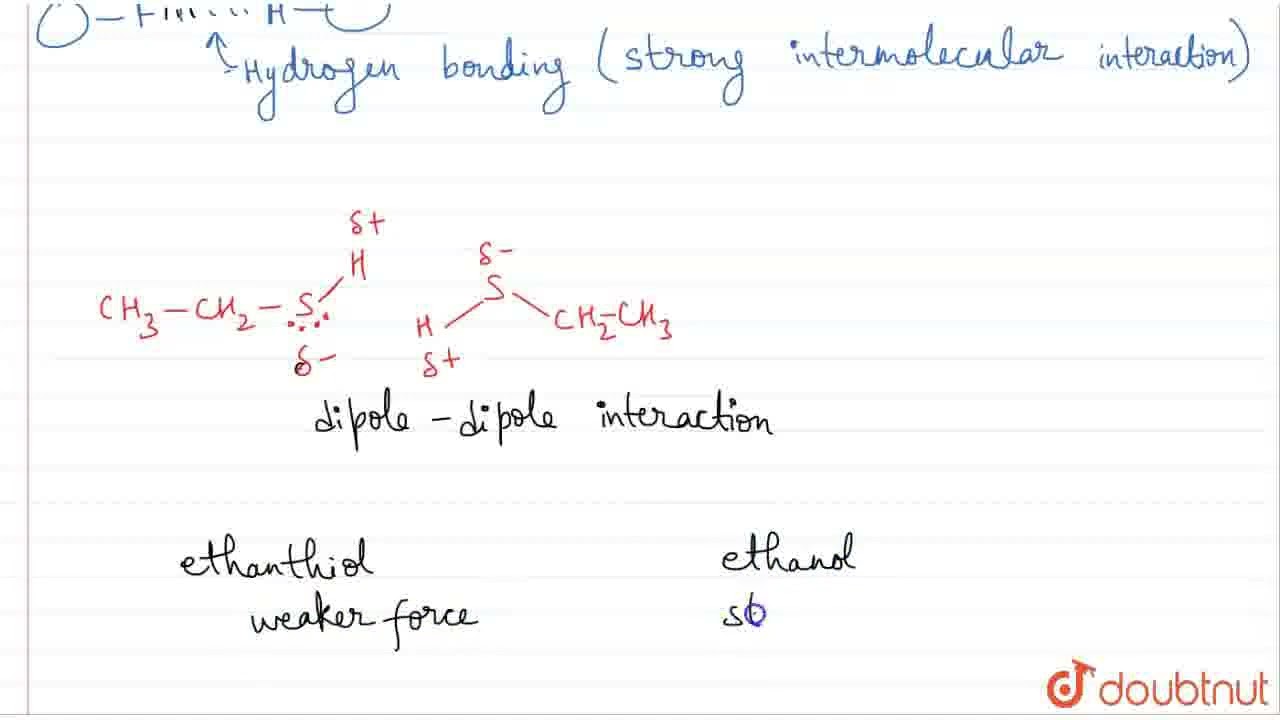 H
Hydrogen bonding (strong intermolecular interaction)
δ+
H
δ-
S
CH3-CH2-S
H
CH2-CH3
δ-
δ+
dipole-dipole interaction
ethanthiol
ethanol
weaker force
st
doubtnut